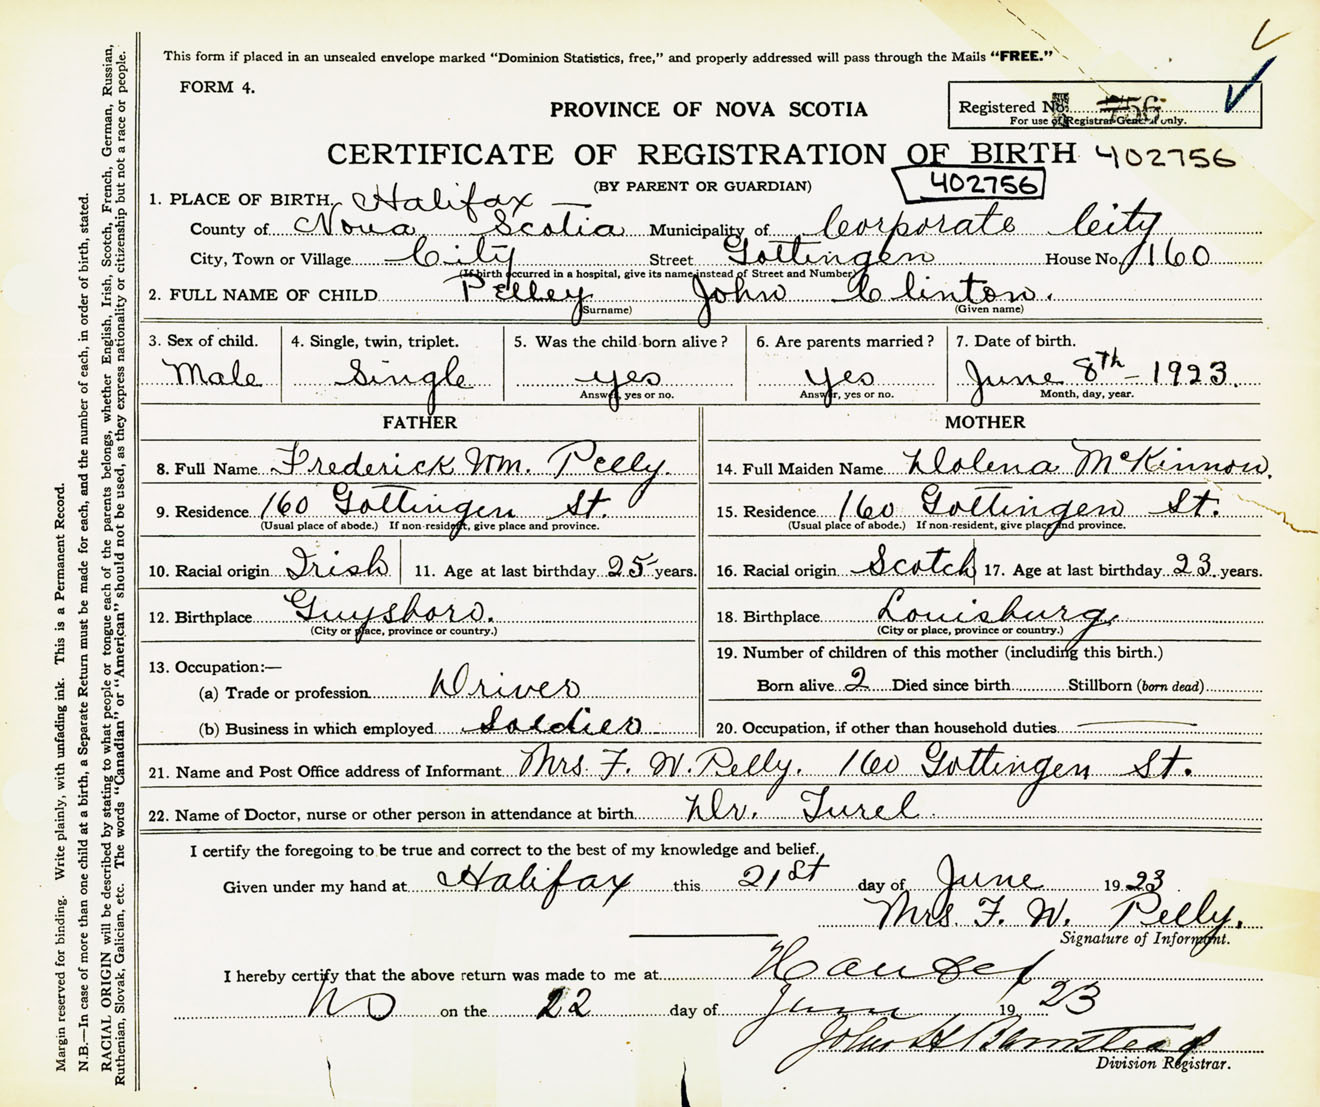 This form if placed in an unsealed envelope marked "Dominion Statistics, free," and properly addressed will pass through the Mails "FREE."
FORM 4.
PROVINCE OF NOVA SCOTIA
Registered No.
For use of Registrar General only.
CERTIFICATE OF REGISTRATION OF BIRTH 402756
(BY PARENT OR GUARDIAN) 402756
1. PLACE OF BIRTH. Halifax —
County of Nova Scotia Municipality of Corporate City
City, Town or Village City Street Gottingen House No. 160
(If birth occurred in a hospital, give its name instead of Street and Number)
2. FULL NAME OF CHILD Pelley John Clinton.
(Surname) (Given name)
3. Sex of child. 4. Single, twin, triplet. 5. Was the child born alive? 6. Are parents married? 7. Date of birth.
Male Single yes yes June 8th - 1923.
Answer, yes or no. Answer, yes or no. Month, day, year.
FATHER MOTHER
8. Full Name Frederick Wm. Pelly. 14. Full Maiden Name Dolena McKinnon.
9. Residence 160 Gottingen St. 15. Residence 160 Gottingen St.
(Usual place of abode.) If non-resident, give place and province. (Usual place of abode.) If non-resident, give place and province.
10. Racial origin Irish 11. Age at last birthday 25 years. 16. Racial origin Scotch 17. Age at last birthday 23 years.
12. Birthplace Guysboro. 18. Birthplace Louisburg.
(City or place, province or country.) (City or place, province or country.)
13. Occupation:— 19. Number of children of this mother (including this birth.)
(a) Trade or profession Driver Born alive 2 Died since birth Stillborn (born dead)
(b) Business in which employed Soldier 20. Occupation, if other than household duties
21. Name and Post Office address of Informant Mrs. F. W. Pelly. 160 Gottingen St.
22. Name of Doctor, nurse or other person in attendance at birth Dr. Turel.
I certify the foregoing to be true and correct to the best of my knowledge and belief.
Given under my hand at Halifax this 21st day of June 1923
Mrs. F. W. Pelly.
Signature of Informant.
I hereby certify that the above return was made to me at
on the 22 day of June 1923
Division Registrar.
Margin reserved for binding. Write plainly, with unfading ink. This is a Permanent Record.
N.B.—In case of more than one child at a birth, a Separate Return must be made for each, and the number of each, in order of birth, stated.
RACIAL ORIGIN will be described by stating to what people or tongue each of the parents belongs, whether English, Irish, Scotch, French, German, Russian,
Ruthenian, Slovak, Galician, etc. The words "Canadian" or "American" should not be used, as they express nationality or citizenship but not a race or people.